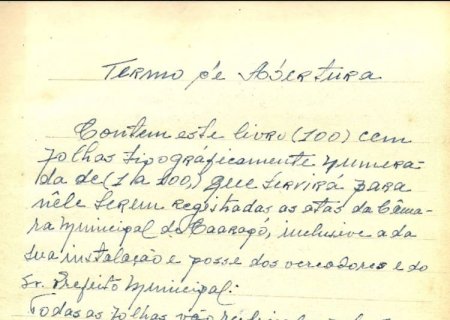 Termo de Abertura
Contem este livro (100) cem
folhas tipográficamente numera-
da de (1 a 100,) que servirá para
nêle serem registradas as atas da Câma-
ra Municipal de Caarapó, inclusive a da
sua instalação e posse dos vereadores e do
Sr. Prefeito Municipal.
Todas as folhas vão